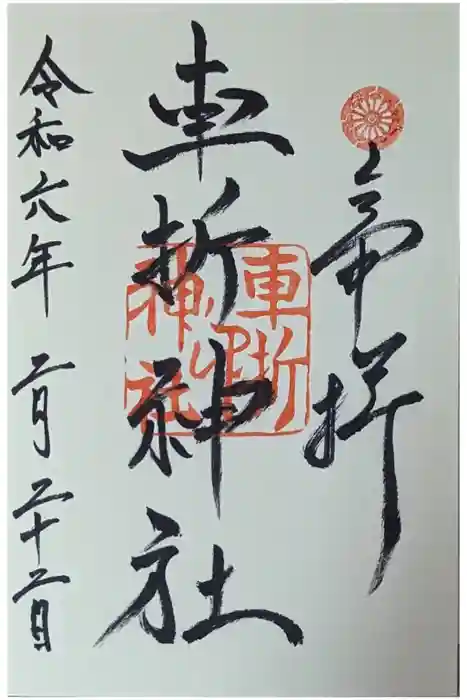 奉拝
車折神社
車折
神社
令和六年二月二十二日